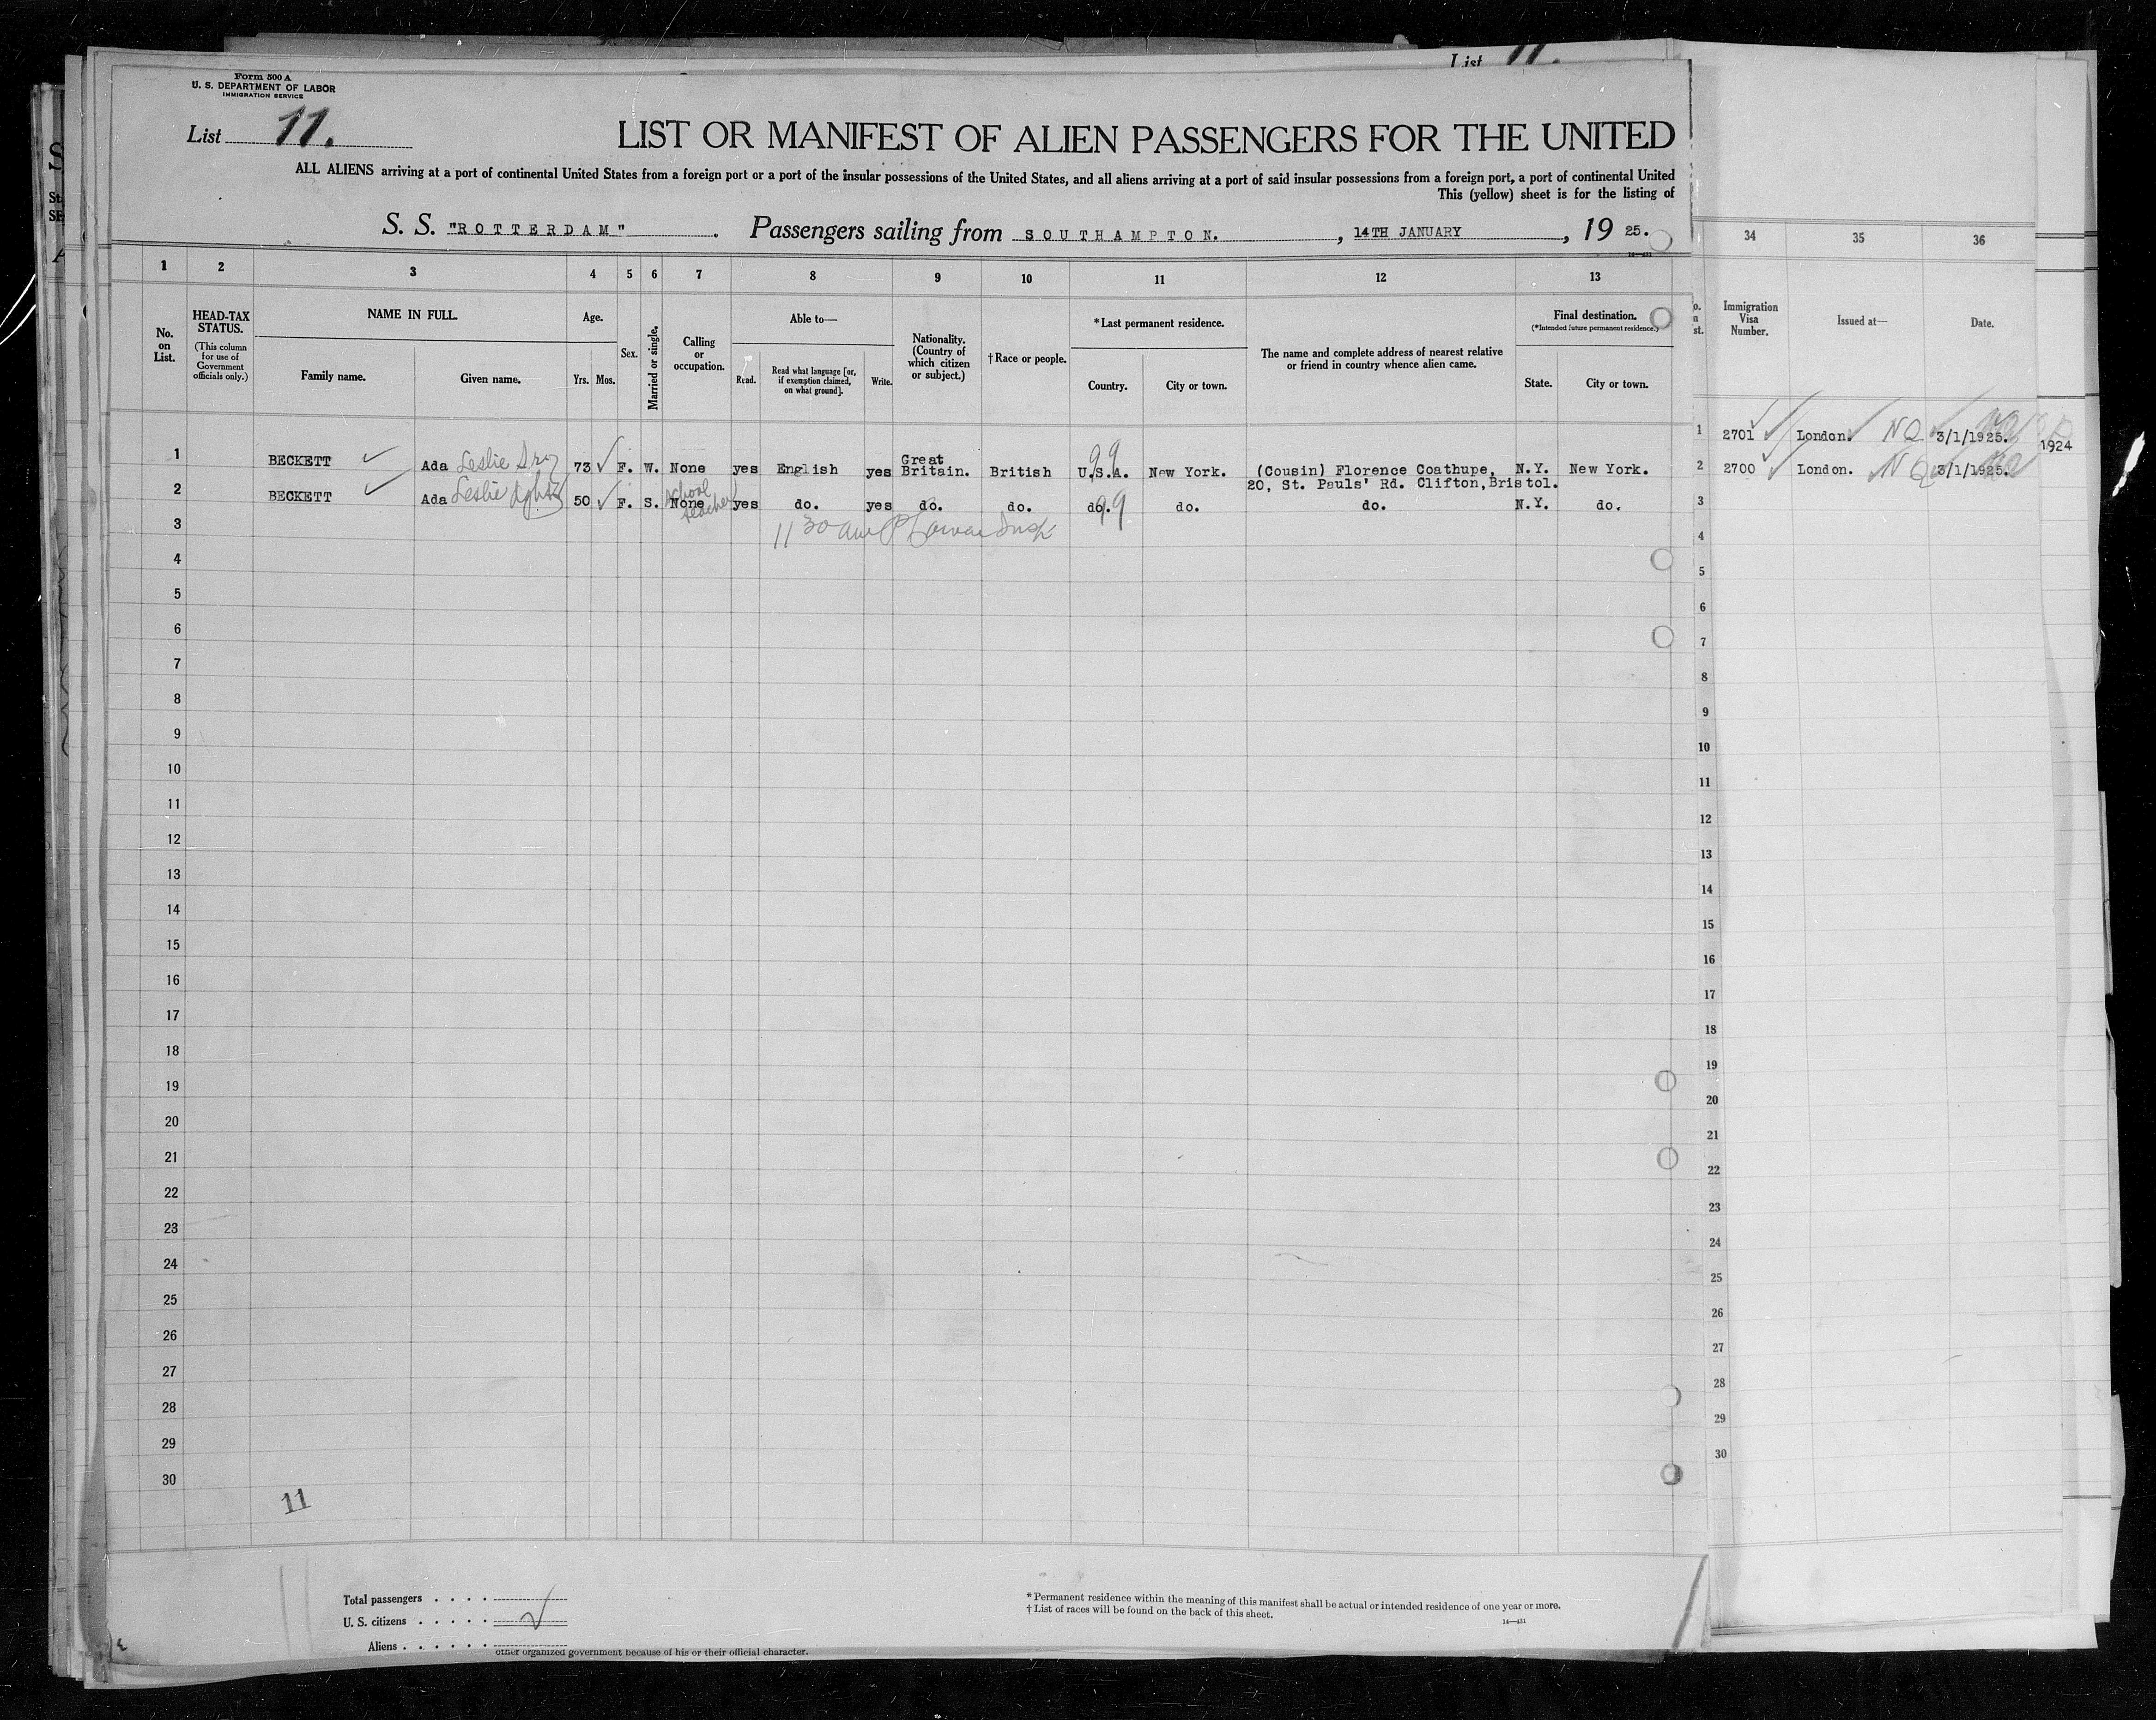 Form 500 A
U. S. DEPARTMENT OF LABOR
IMMIGRATION SERVICE
List 11.
List 11.
LIST OR MANIFEST OF ALIEN PASSENGERS FOR THE UNITED
ALL ALIENS arriving at a port of continental United States from a foreign port or a port of the insular possessions of the United States, and all aliens arriving at a port of said insular possessions from a foreign port, a port of continental United
This (yellow) sheet is for the listing of
S. S. "ROTTERDAM". Passengers sailing from SOUTHAMPTON., 14TH JANUARY, 19 25.
14—431
1 2 3 4 5 6 7 8 9 10 11 12 13 34 35 36
No. on List.
HEAD-TAX STATUS.
(This column for use of Government officials only.)
NAME IN FULL.
Family name. Given name.
Age.
Yrs. Mos.
Sex.
Married or single.
Calling or occupation.
Able to—
Read. Read what language [or, if exemption claimed, on what ground]. Write.
Nationality. (Country of which citizen or subject.)
†Race or people.
*Last permanent residence.
Country. City or town.
The name and complete address of nearest relative or friend in country whence alien came.
Final destination.
(*Intended future permanent residence.)
State. City or town.
Immigration Visa Number.
Issued at—
Date.
1 BECKETT Ada Leslie 73 F. W. None yes English yes Great Britain. British 99 U.S.A. New York. (Cousin) Florence Coathupe, N.Y. New York.
20, St. Pauls' Rd. Clifton, Bristol.
2 BECKETT Ada Leslie 50 F. S. None school teacher yes do. yes do. do. do. 99 do. do. N.Y. do.
1 2701 London. NQ 3/1/1925.
2 2700 London. NQ 3/1/1925.
1924
11 30 am
3
4
5
6
7
8
9
10
11
12
13
14
15
16
17
18
19
20
21
22
23
24
25
26
27
28
29
30
3
4
5
6
7
8
9
10
11
12
13
14
15
16
17
18
19
20
21
22
23
24
25
26
27
28
29
30
11
Total passengers
U. S. citizens
Aliens
other organized government because of his or their official character.
*Permanent residence within the meaning of this manifest shall be actual or intended residence of one year or more.
†List of races will be found on the back of this sheet.
14—431